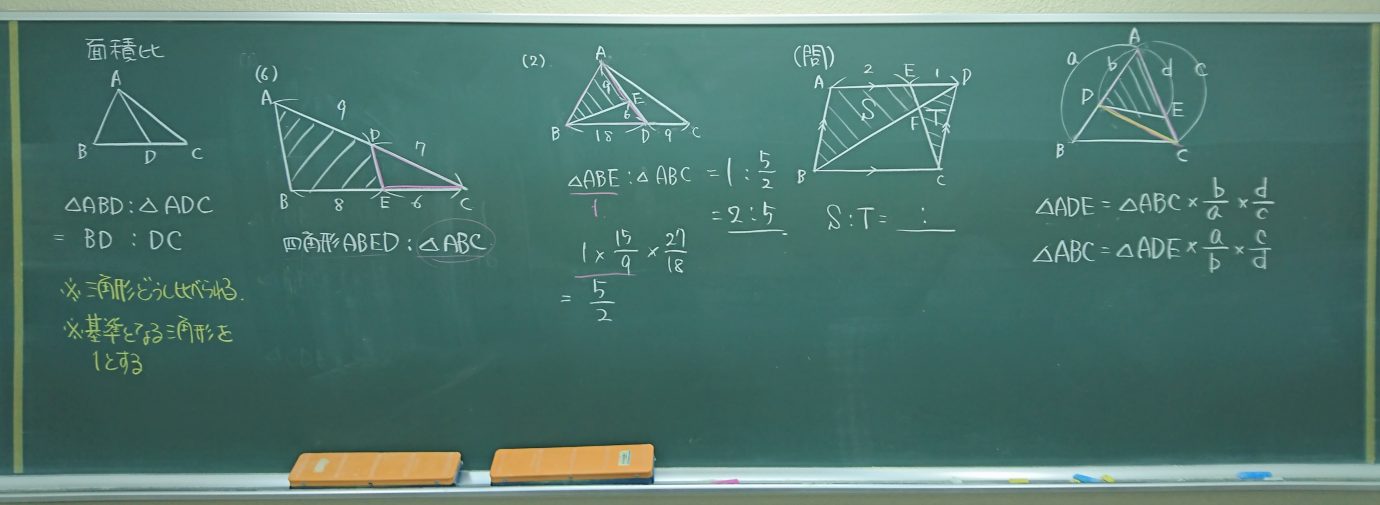 面積比
A
B D C
△ABD:△ADC
= BD : DC
※三角形どうし比べられる.
※基準となる三角形を
1とする
(6)
A
9
D
7
B 8 E 6 C
四角形ABED:△ABC
(2)
A
9
E
6
B 18 D 9 C
△ABE:△ABC = 1:5/2
1
= 2:5
1×15/9×27/18
= 5/2
(問)
A 2 E 1 D
S F T
B C
S:T= :
A
a b d c
D E
B C
△ADE=△ABC×b/a×d/c
△ABC=△ADE×a/b×c/d